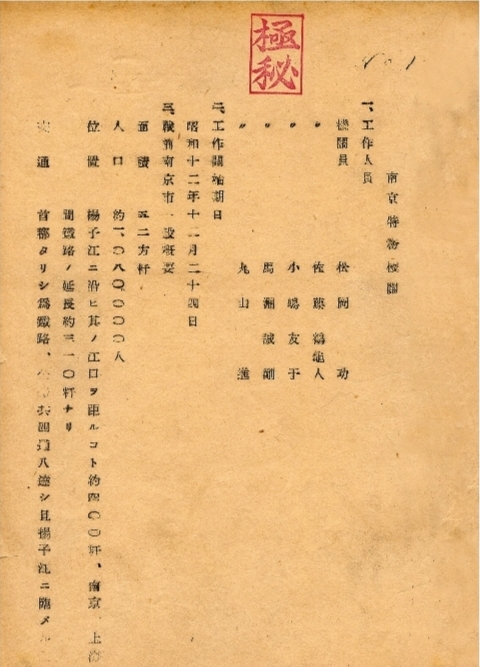 極秘
No 1
南京特務機關
一、工作人員
機關員 松岡 功
〃 佐藤鶴龜人
〃 小嶋友于
〃 馬淵誠剛
〃 丸山進
二、工作開始期日
昭和十二年十二月二十四日
三、戰前南京市一般概要
面積 五二方粁
人口 約一、〇八〇〇〇〇人
位置 揚子江ニ沿ヒ其ノ江口ヲ距ルコト約四〇〇粁、南京、上海
間鐵路ノ延長約三一〇粁ナリ
交通 首都タリシ爲鐵路、共四通八達シ且揚子江ニ臨メル